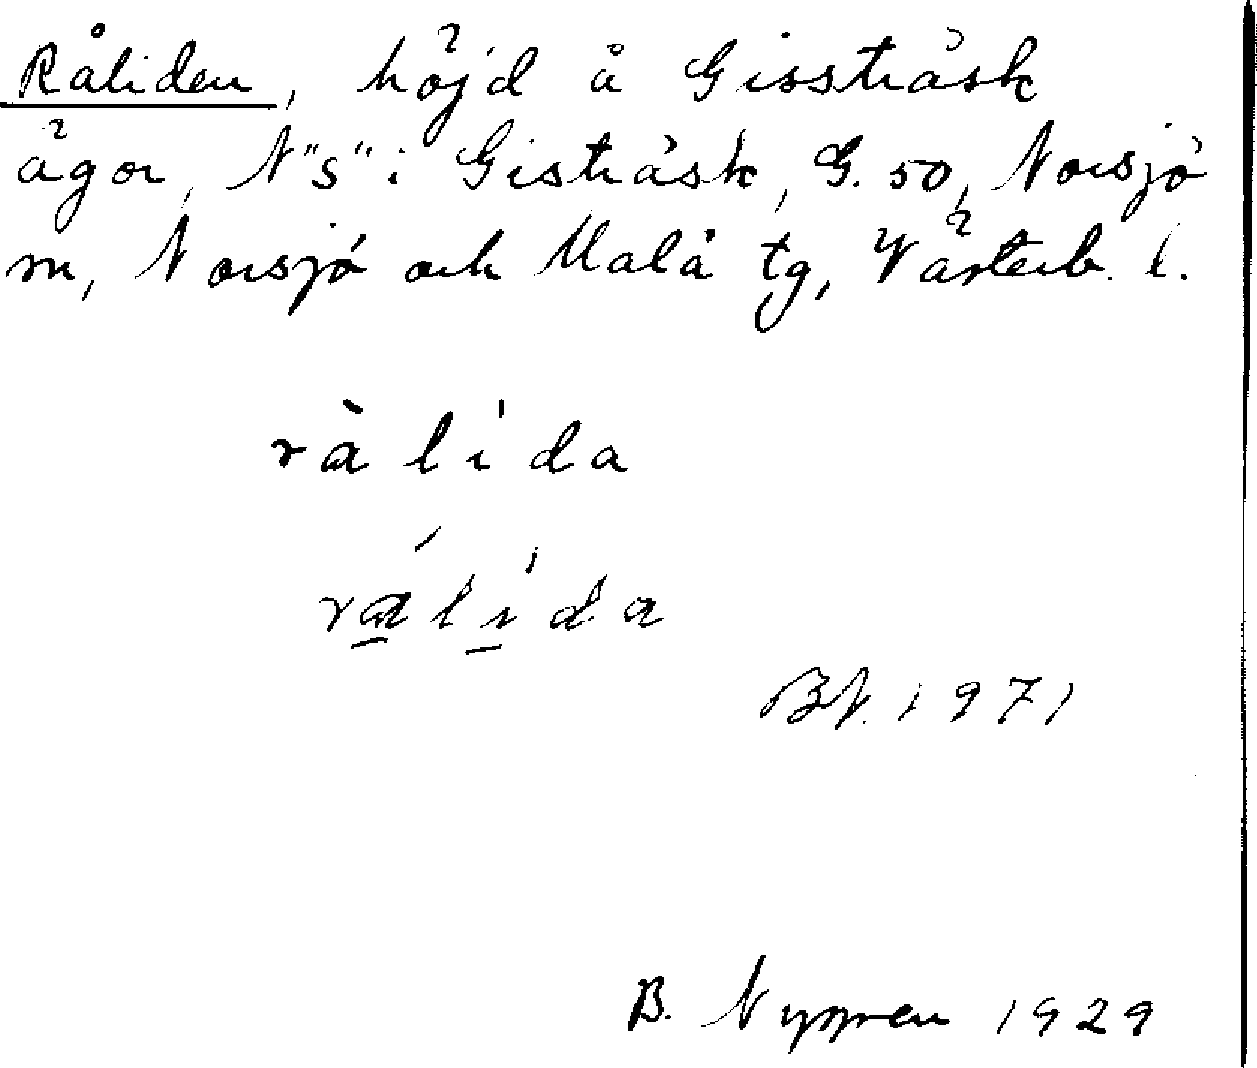 Råliden, höjd å Gissträsk
ägor, N "S" i Gisträsk, G. 50, Norsjö
sn, Norsjö och Malå tg, Västerb. l.
rà lı́ da
rá̱lı̱́da
BN. 1971
B. Nygren 1929